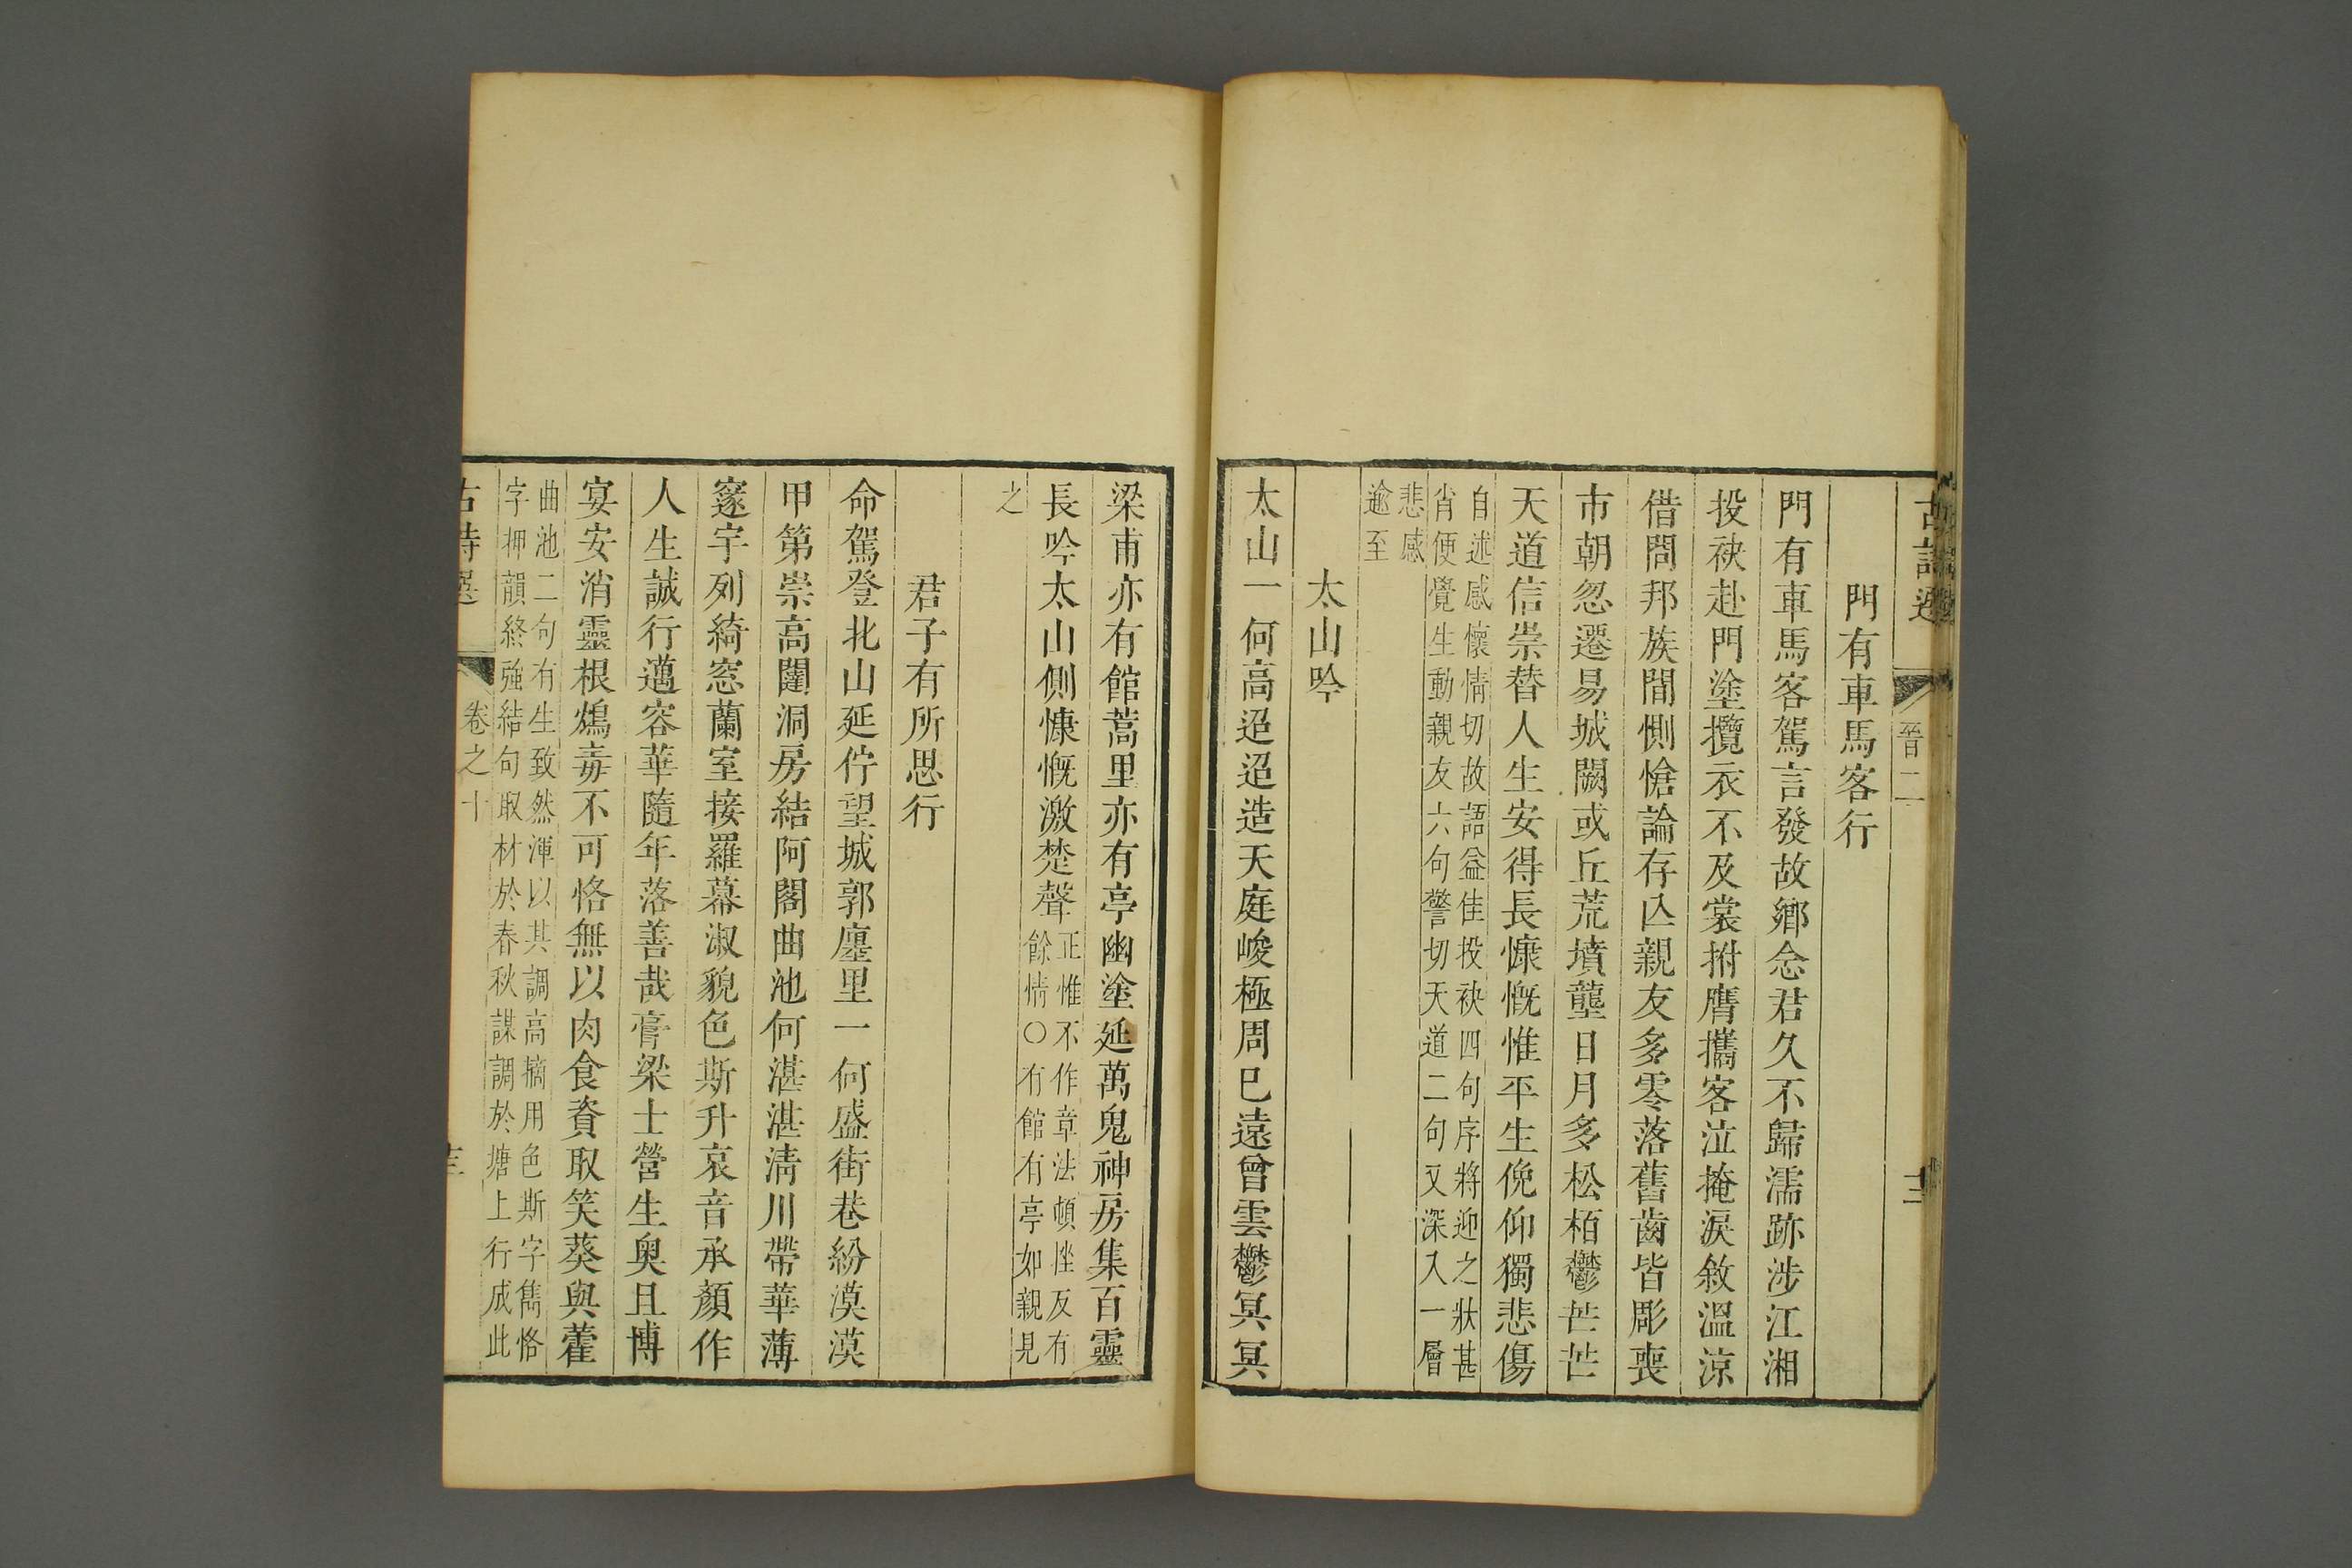 晉二
門有車馬客行
門有車馬客駕言發故鄉念君久不歸濡跡涉江湘
投袂赴門塗攬衣不及裳拊膺攜客泣掩淚敘溫涼
借問邦族間惻愴論存亾親友多零落舊齒皆彫喪
市朝忽遷易城闕或丘荒墳壟日月多松栢鬱芒芒
天道信崇替人生安得長慷慨惟平生俛仰獨悲傷
自述感懷情切故語益佳投袂四句序將迎之狀甚
肖便覺生動親友六句警切天道二句又深入一層
悲感
逾至
太山吟
太山一何高迢迢造天庭峻極周巳遠曾雲鬱冥冥
梁甫亦有館蒿里亦有亭幽塗延萬鬼神房集百靈
長吟太山側慷慨激楚聲
正惟不作章法頓挫反有
餘情〇有館有亭如親見
之
君子有所思行
命駕登北山延佇望城郭廛里一何盛街巷紛漠漠
甲第崇高闥洞房結阿閣曲池何湛湛清川帶華薄
邃宇列綺窓蘭室接羅幕淑貌色斯升哀音承顏作
人生誠行邁容華隨年落善哉膏梁士營生奥且博
宴安消靈根鴆毒不可恪無以肉食資取笑葵與藿
曲池二句有生致然渾以其調高摘用色斯字雋恪
字押韻終強結句取材於春秋謀調於塘上行成此
古詩選
卷之十